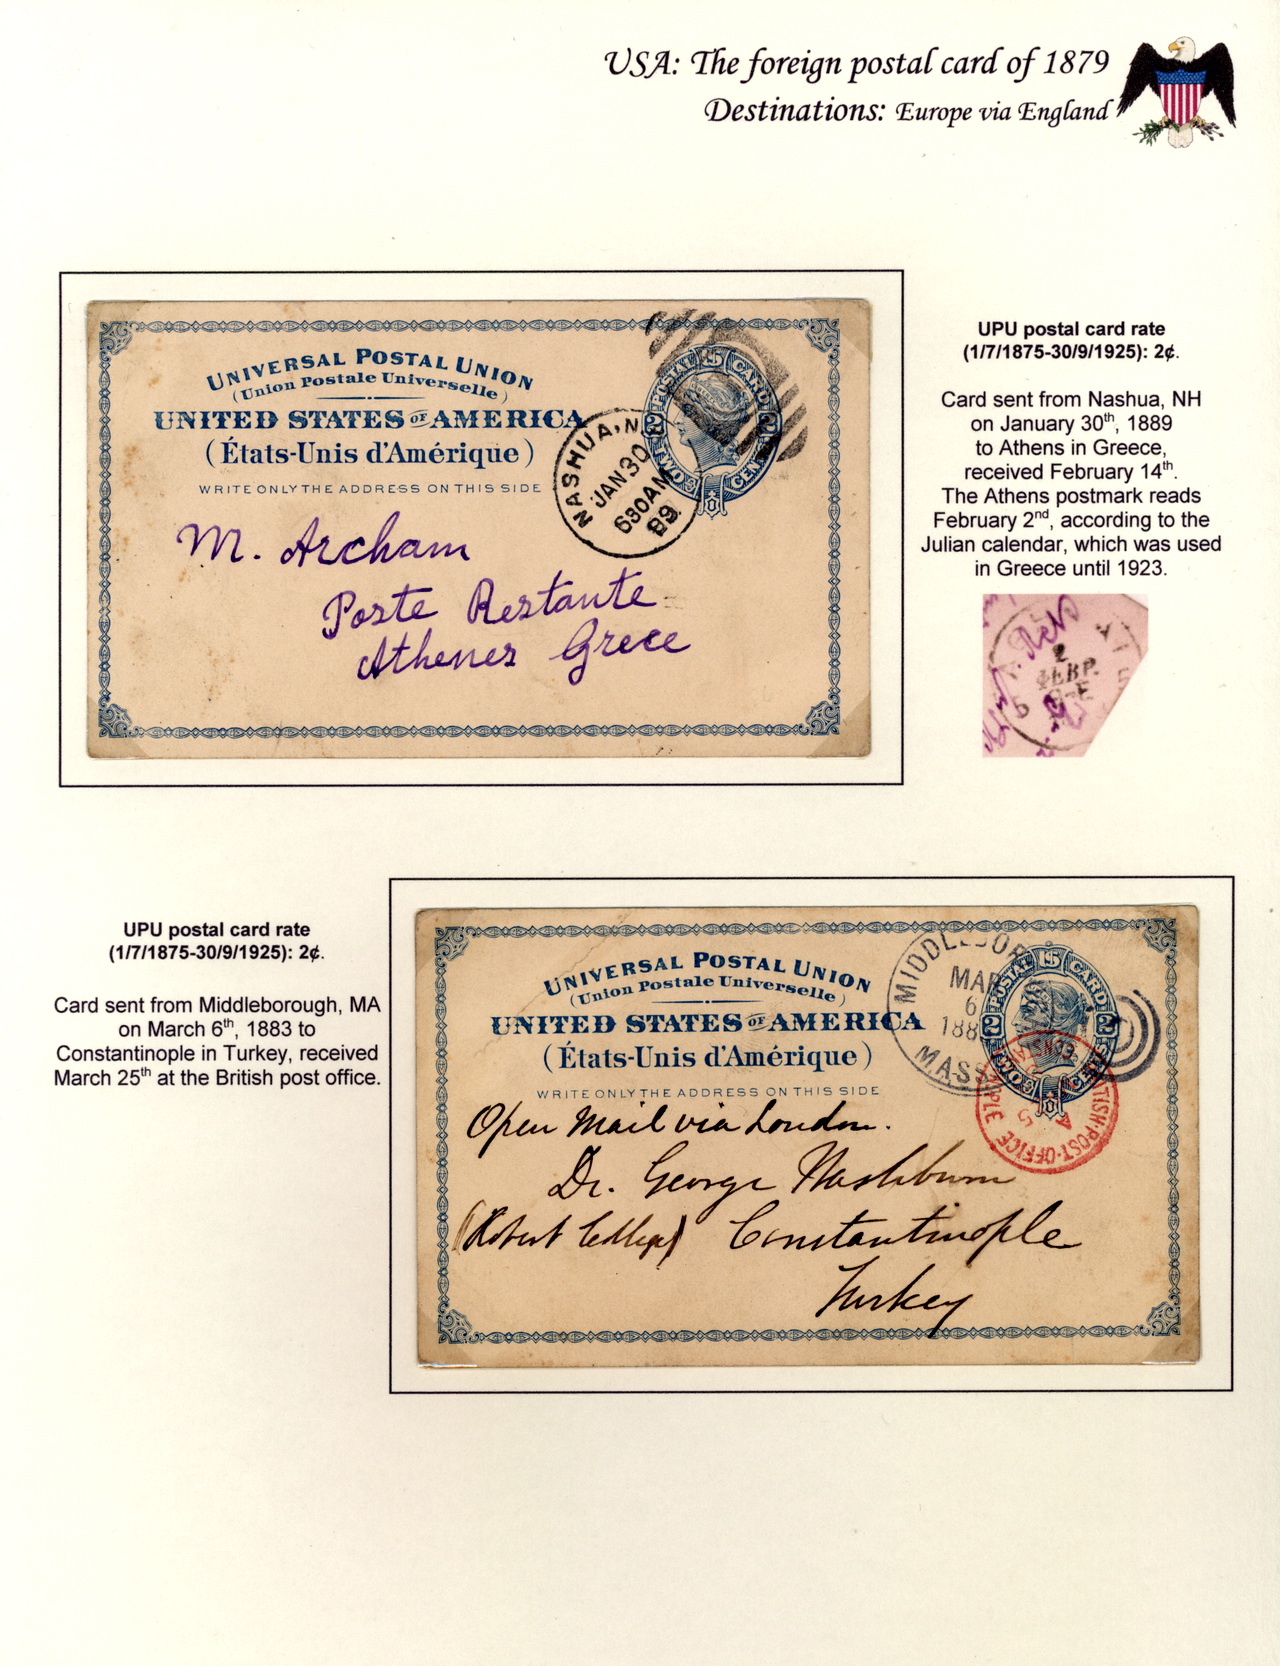 USA: The foreign postal card of 1879
Destinations: Europe via England
UNIVERSAL POSTAL UNION
(Union Postale Universelle)
UNITED STATES OF AMERICA
(États-Unis d'Amérique)
WRITE ONLY THE ADDRESS ON THIS SIDE
U.S. POSTAL CARD
2 2
TWO CENTS
NASHUA, N.
JAN 30
630AM
89
M. Archam
Poste Restante
Athenes Grece
UPU postal card rate
(1/7/1875-30/9/1925): 2¢.
Card sent from Nashua, NH
on January 30th, 1889
to Athens in Greece,
received February 14th.
The Athens postmark reads
February 2nd, according to the
Julian calendar, which was used
in Greece until 1923.
2
ΦΕΒΡ.
UPU postal card rate
(1/7/1875-30/9/1925): 2¢.
Card sent from Middleborough, MA
on March 6th, 1883 to
Constantinople in Turkey, received
March 25th at the British post office.
UNIVERSAL POSTAL UNION
(Union Postale Universelle)
UNITED STATES OF AMERICA
(États-Unis d'Amérique)
WRITE ONLY THE ADDRESS ON THIS SIDE
U.S. POSTAL CARD
2 2
TWO CENTS
MIDDLEBOR
MAR
6
188
MASS
BRITISH·POST·OFFICE
A
5
Open Mail via London.
Dr. George Washburn
(Robert College) Constantinople
Turkey